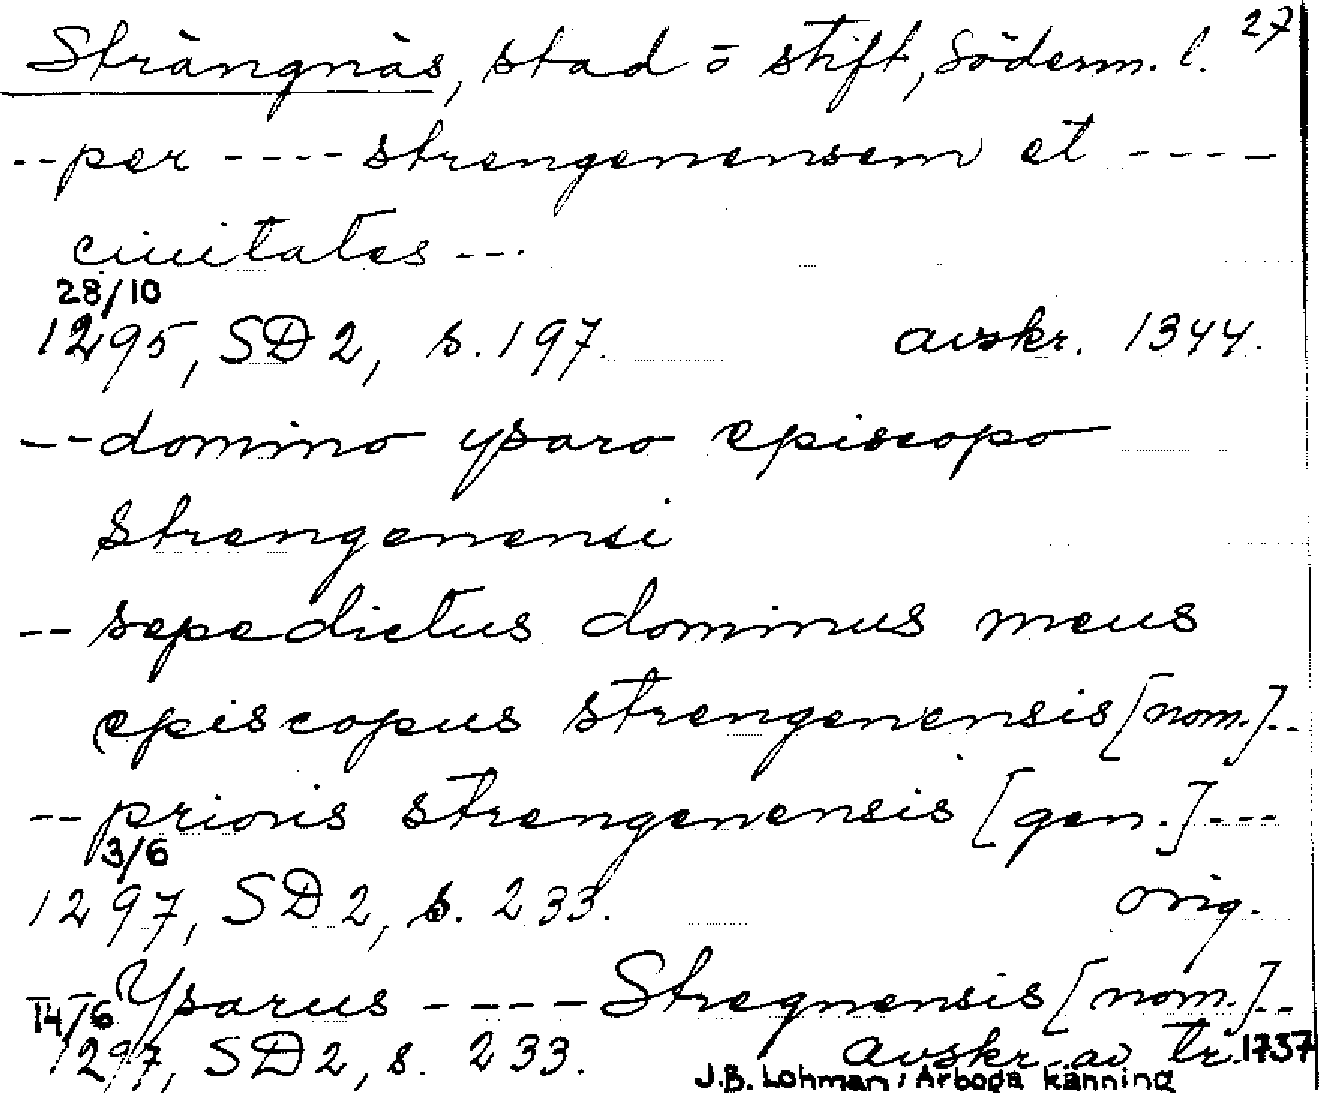 27
Strängnäs, stad o stift, Söderm. l.
-- per ---- strengenensem et ----
ciuitates ---
28/10
1295, SD 2, s. 197. avskr. 1344.
-- domino ysaro episcopo
strengenensi
-- sepedictus dominus meus
episcopus strengenensis [nom.] --
-- prioris strengenensis [gen.] ---
3/6
1297, SD 2, s. 233. orig.
Ysarus ---- Stregnensis [nom.] --
14/6
1297, SD 2, s. 233. avskr. av tr. 1737
J.B. Lohman i Arboga känning